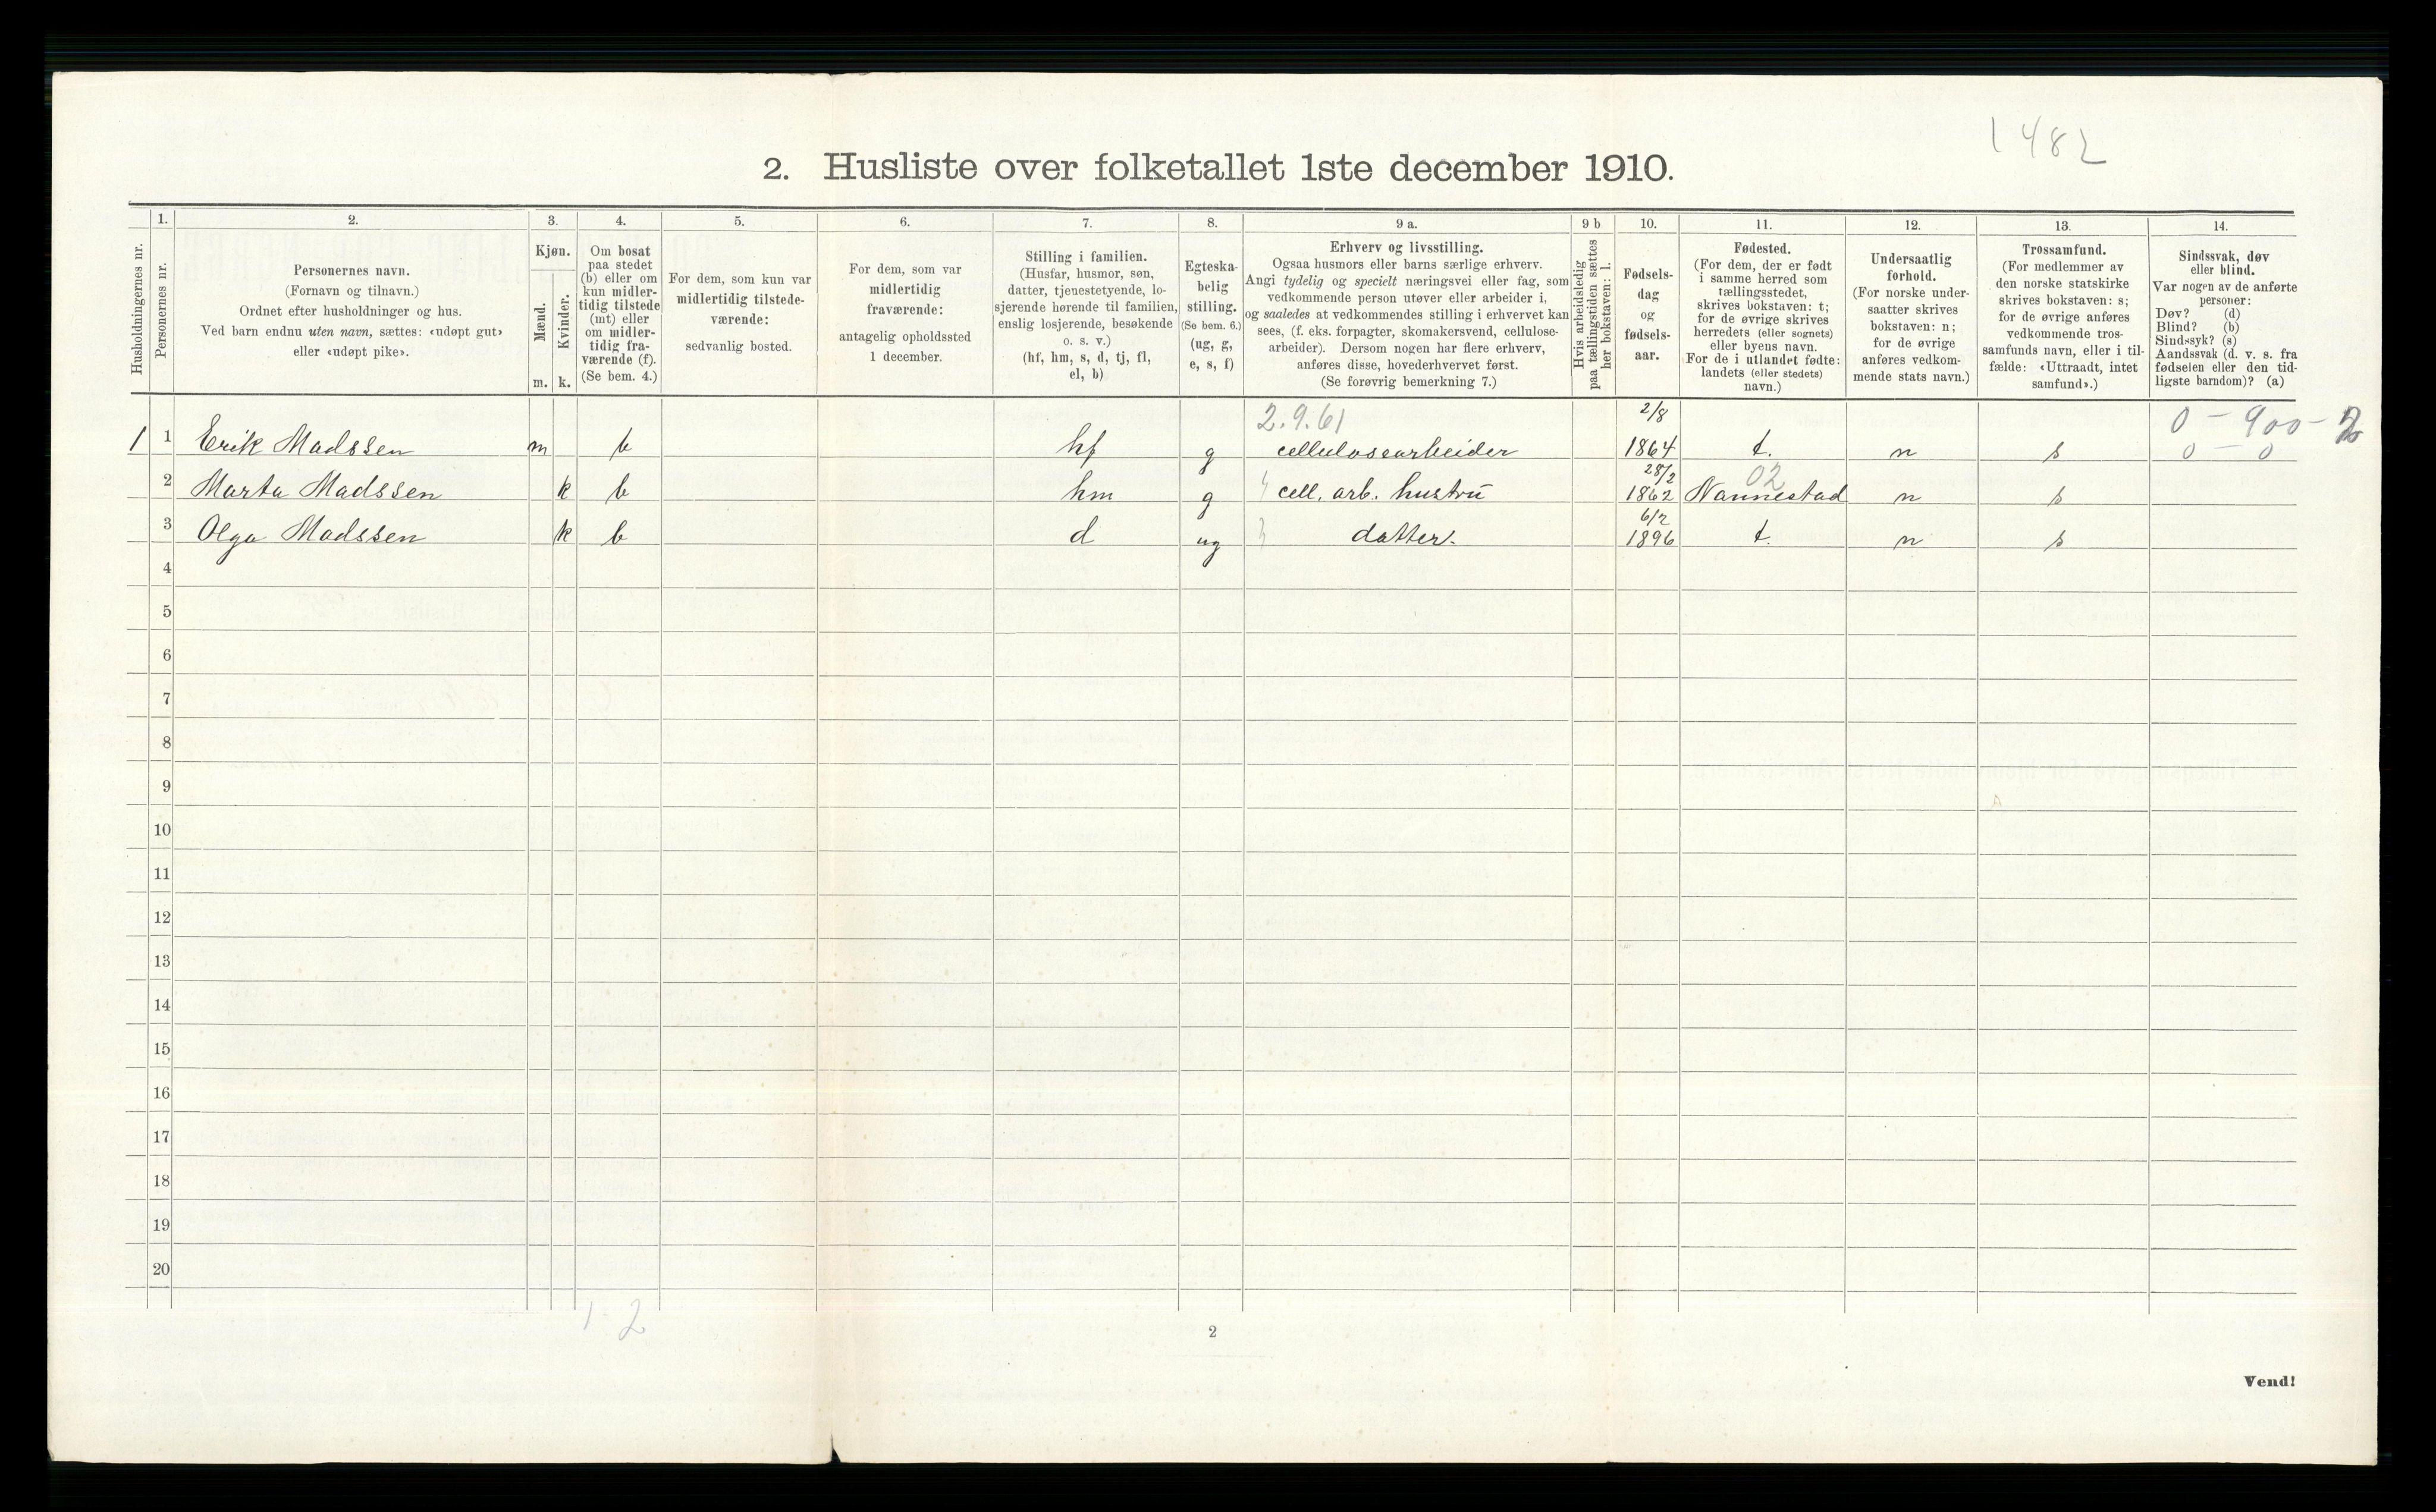 1482
2. Husliste over folketallet 1ste december 1910.
Husholdningernes nr.
1.
Personernes nr.
2.
Personernes navn.
(Fornavn og tilnavn.)
Ordnet efter husholdninger og hus.
Ved barn endnu uten navn, sættes: «udøpt gut»
eller «udøpt pike».
3.
Kjøn.
Mænd.
Kvinder.
m. k.
4.
Om bosat
paa stedet
(b) eller om
kun midler-
tidig tilstede
(mt) eller
om midler-
tidig fra-
værende (f).
(Se bem. 4.)
5.
For dem, som kun var
midlertidig tilstede-
værende:
sedvanlig bosted.
6.
For dem, som var
midlertidig
fraværende:
antagelig opholdssted
1 december.
7.
Stilling i familien.
(Husfar, husmor, søn,
datter, tjenestetyende, lo-
sjerende hørende til familien,
enslig losjerende, besøkende
o. s. v.)
(hf, hm, s, d, tj, fl,
el, b)
8.
Egteska-
belig
stilling.
(Se bem. 6.)
(ug, g,
e, s, f)
9 a.
Erhverv og livsstilling.
Ogsaa husmors eller barns særlige erhverv.
Angi tydelig og specielt næringsvei eller fag, som
vedkommende person utøver eller arbeider i,
og saaledes at vedkommendes stilling i erhvervet kan
sees, (f. eks. forpagter, skomakersvend, cellulose-
arbeider). Dersom nogen har flere erhverv,
anføres disse, hovederhvervet først.
(Se forøvrig bemerkning 7.)
9 b
Hvis arbeidsledig
paa tællingstiden sættes
her bokstaven: l.
10.
Fødsels-
dag
og
fødsels-
aar.
11.
Fødested.
(For dem, der er født
i samme herred som
tællingsstedet,
skrives bokstaven: t;
for de øvrige skrives
herredets (eller sognets)
eller byens navn.
For de i utlandet fødte:
landets (eller stedets)
navn.)
12.
Undersaatlig
forhold.
(For norske under-
saatter skrives
bokstaven: n;
for de øvrige
anføres vedkom-
mende stats navn.)
13.
Trossamfund.
(For medlemmer av
den norske statskirke
skrives bokstaven: s;
for de øvrige anføres
vedkommende tros-
samfunds navn, eller i til-
fælde: «Uttraadt, intet
samfund».)
14.
Sindssvak, døv
eller blind.
Var nogen av de anførte
personer:
Døv? (d)
Blind? (b)
Sindssyk? (s)
Aandssvak (d. v. s. fra
fødselen eller den tid-
ligste barndom)? (a)
2.9.61 2/8 0 - 900 - 2
1 1 Erik Madssen m b hf g cellulosearbeider 1864 t. n s 0 - 0
28/2 02
2 Marta Madssen k b hm g cell. arb. hustru 1862 Nannestad n s
6/2
3 Olga Madssen k b d ug datter. 1896 t. n s
4
5
6
7
8
9
10
11
12
13
14
15
16
17
18
19
20
1 - 2
2
Vend!